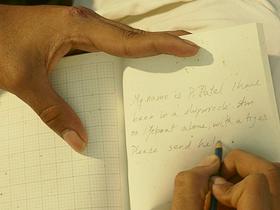 My name is Pi Patel I have
been in a shipwreck. I'm
on lifeboat alone, with a tiger.
Please send help